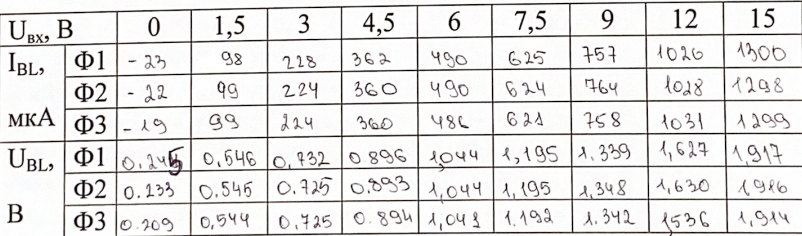 Uвх, В 0 1,5 3 4,5 6 7,5 9 12 15
IBL, мкА Ф1 -23 98 228 362 490 625 757 1026 1300
Ф2 -22 99 224 360 490 624 764 1028 1298
Ф3 -19 99 224 360 486 621 758 1031 1299
UBL, В Ф1 0.245 0,546 0,732 0.896 1,044 1,195 1.339 1,627 1,917
Ф2 0.233 0.545 0.725 0.893 1,044 1,195 1,348 1,630 1,916
Ф3 0.209 0,544 0,725 0.894 1,041 1.192 1.342 1,536 1,914